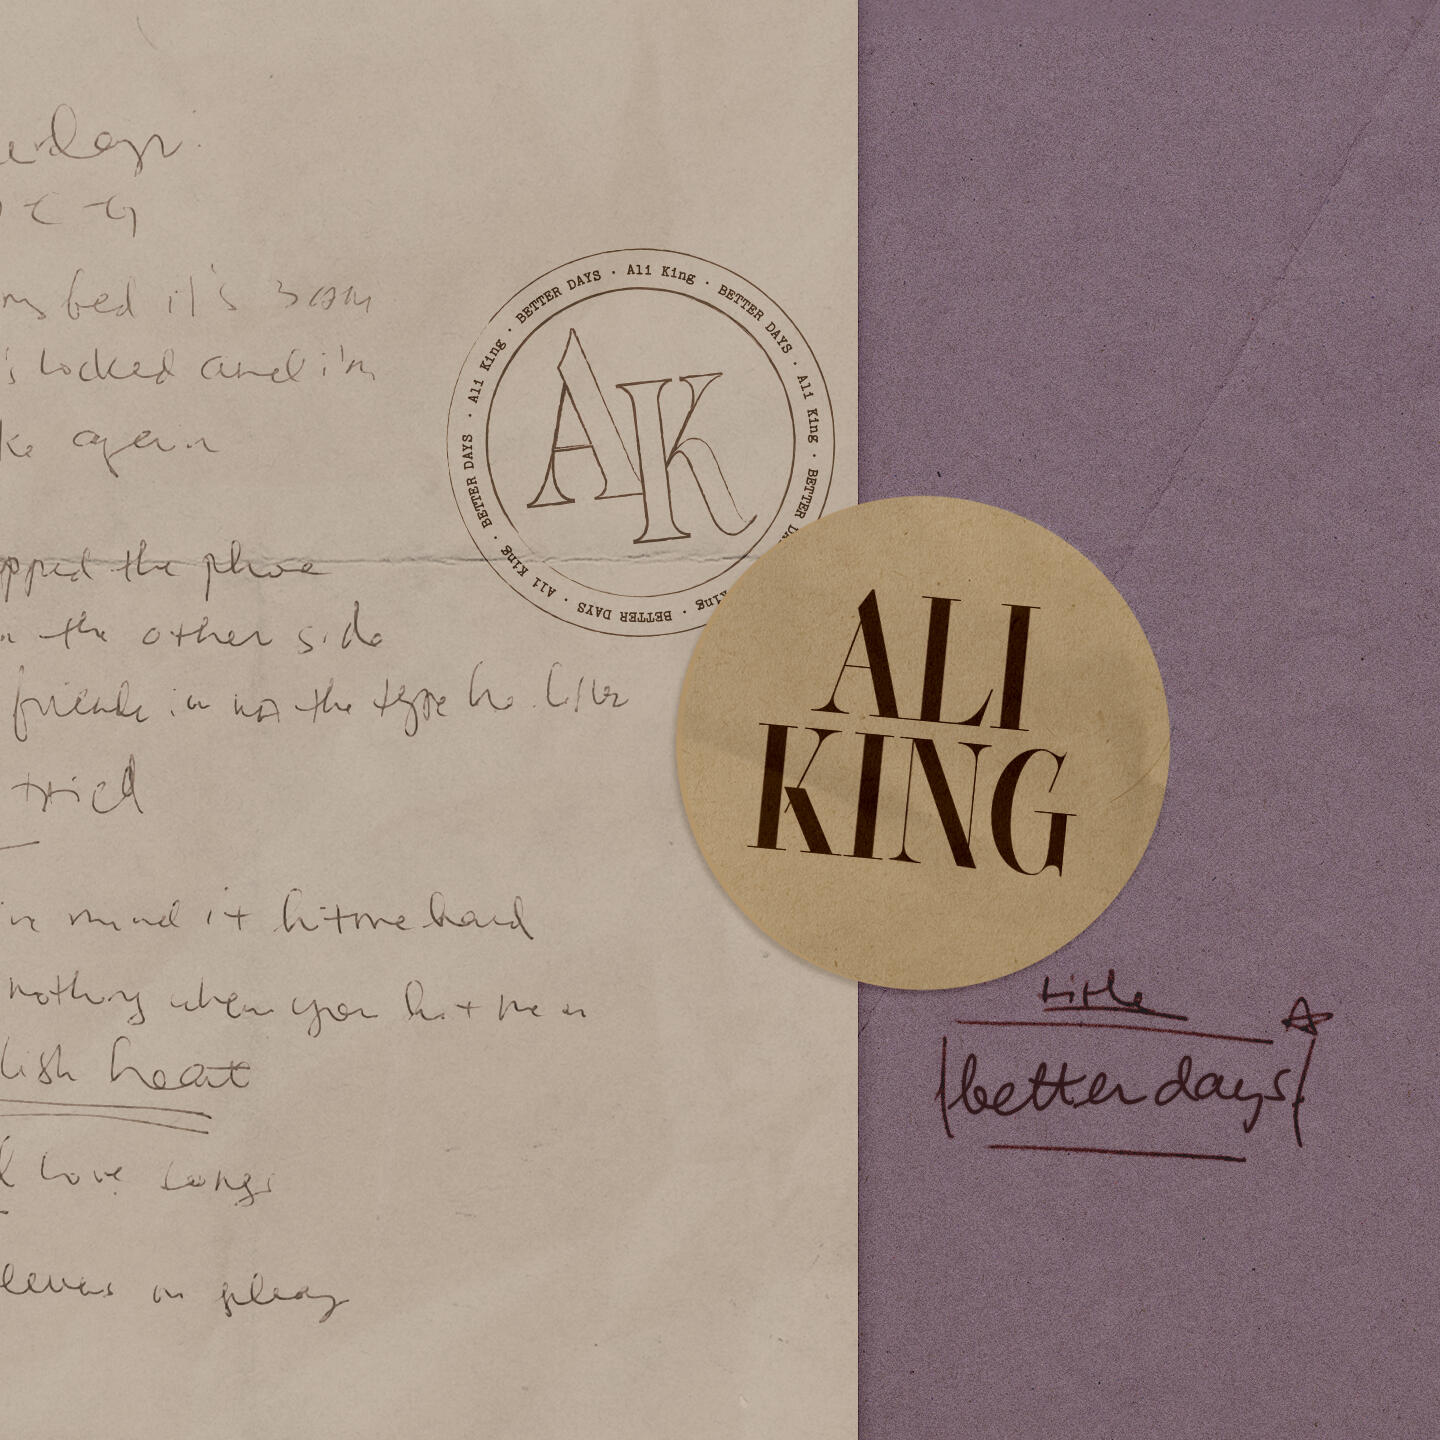 days
C G
my bed it's 3 am
's locked and i'm
again
the phone
the other side
friends in not the type he likes
tried
mind it hit me hard
nothing when you hit me
lish heat
love songs
in play
AK
Ali King · BETTER DAYS · Ali King · BETTER DAYS · Ali King · BETTER DAYS · Ali King · BETTER DAYS · Ali King · BETTER DAYS
ALI
KING
title
better days